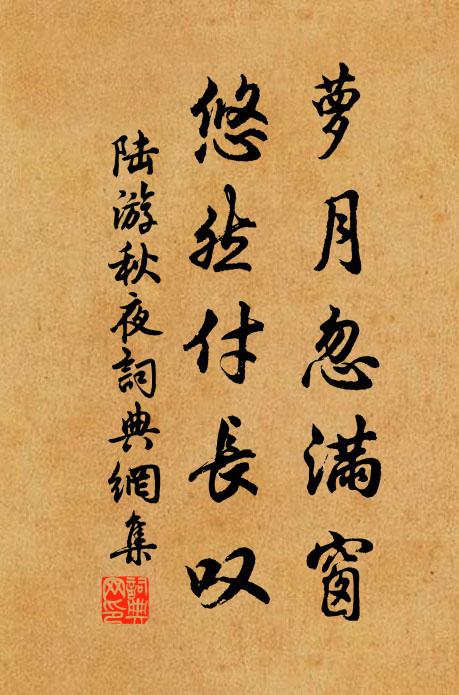 萝月忽满窗
悠然付長叹
陆游秋夜詞典網集
詞典网印